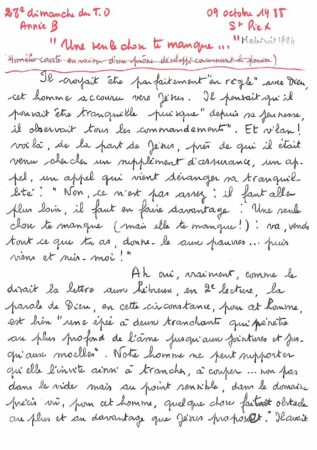 28e dimanche du T.O 09 octobre 1988
Année B St Pie X
"Une seule chose te manque..."
(Homélie courte en raison d'un prône développé concernant
Il croyait être parfaitement "en règle" avec Dieu,
cet homme accouru vers Jésus. Il pensait qu'il
pouvait être tranquille puisque "depuis sa jeunesse,
il observait tous les commandements". Et v'lan!
voilà, de la part de Jésus, près de qui il était
venu chercher un supplément d'assurance, un ap-
pel, un appel qui vient déranger sa tranquil-
lité: "Non, ce n'est pas assez: il faut aller
plus loin, il faut en faire davantage: Une seule
chose te manque (mais elle te manque!): va, vends
tout ce que tu as, donne-le aux pauvres... puis
viens et suis-moi!"
Ah oui, vraiment, comme le
disait la lettre aux Hébreux, en 2e lecture, la
parole de Dieu, en cette circonstance, pour cet homme,
est bien "une épée à deux tranchants qui pénètre
au plus profond de l'âme jusqu'aux jointures et jus-
qu'aux moelles". Notre homme ne peut supporter
qu'elle l'invite ainsi à trancher, à couper... non pas
dans le vide mais au point sensible, dans le domaine
précis où, pour cet homme, quelque chose faisait obstacle
au plus et au davantage que Jésus proposait. Il avait